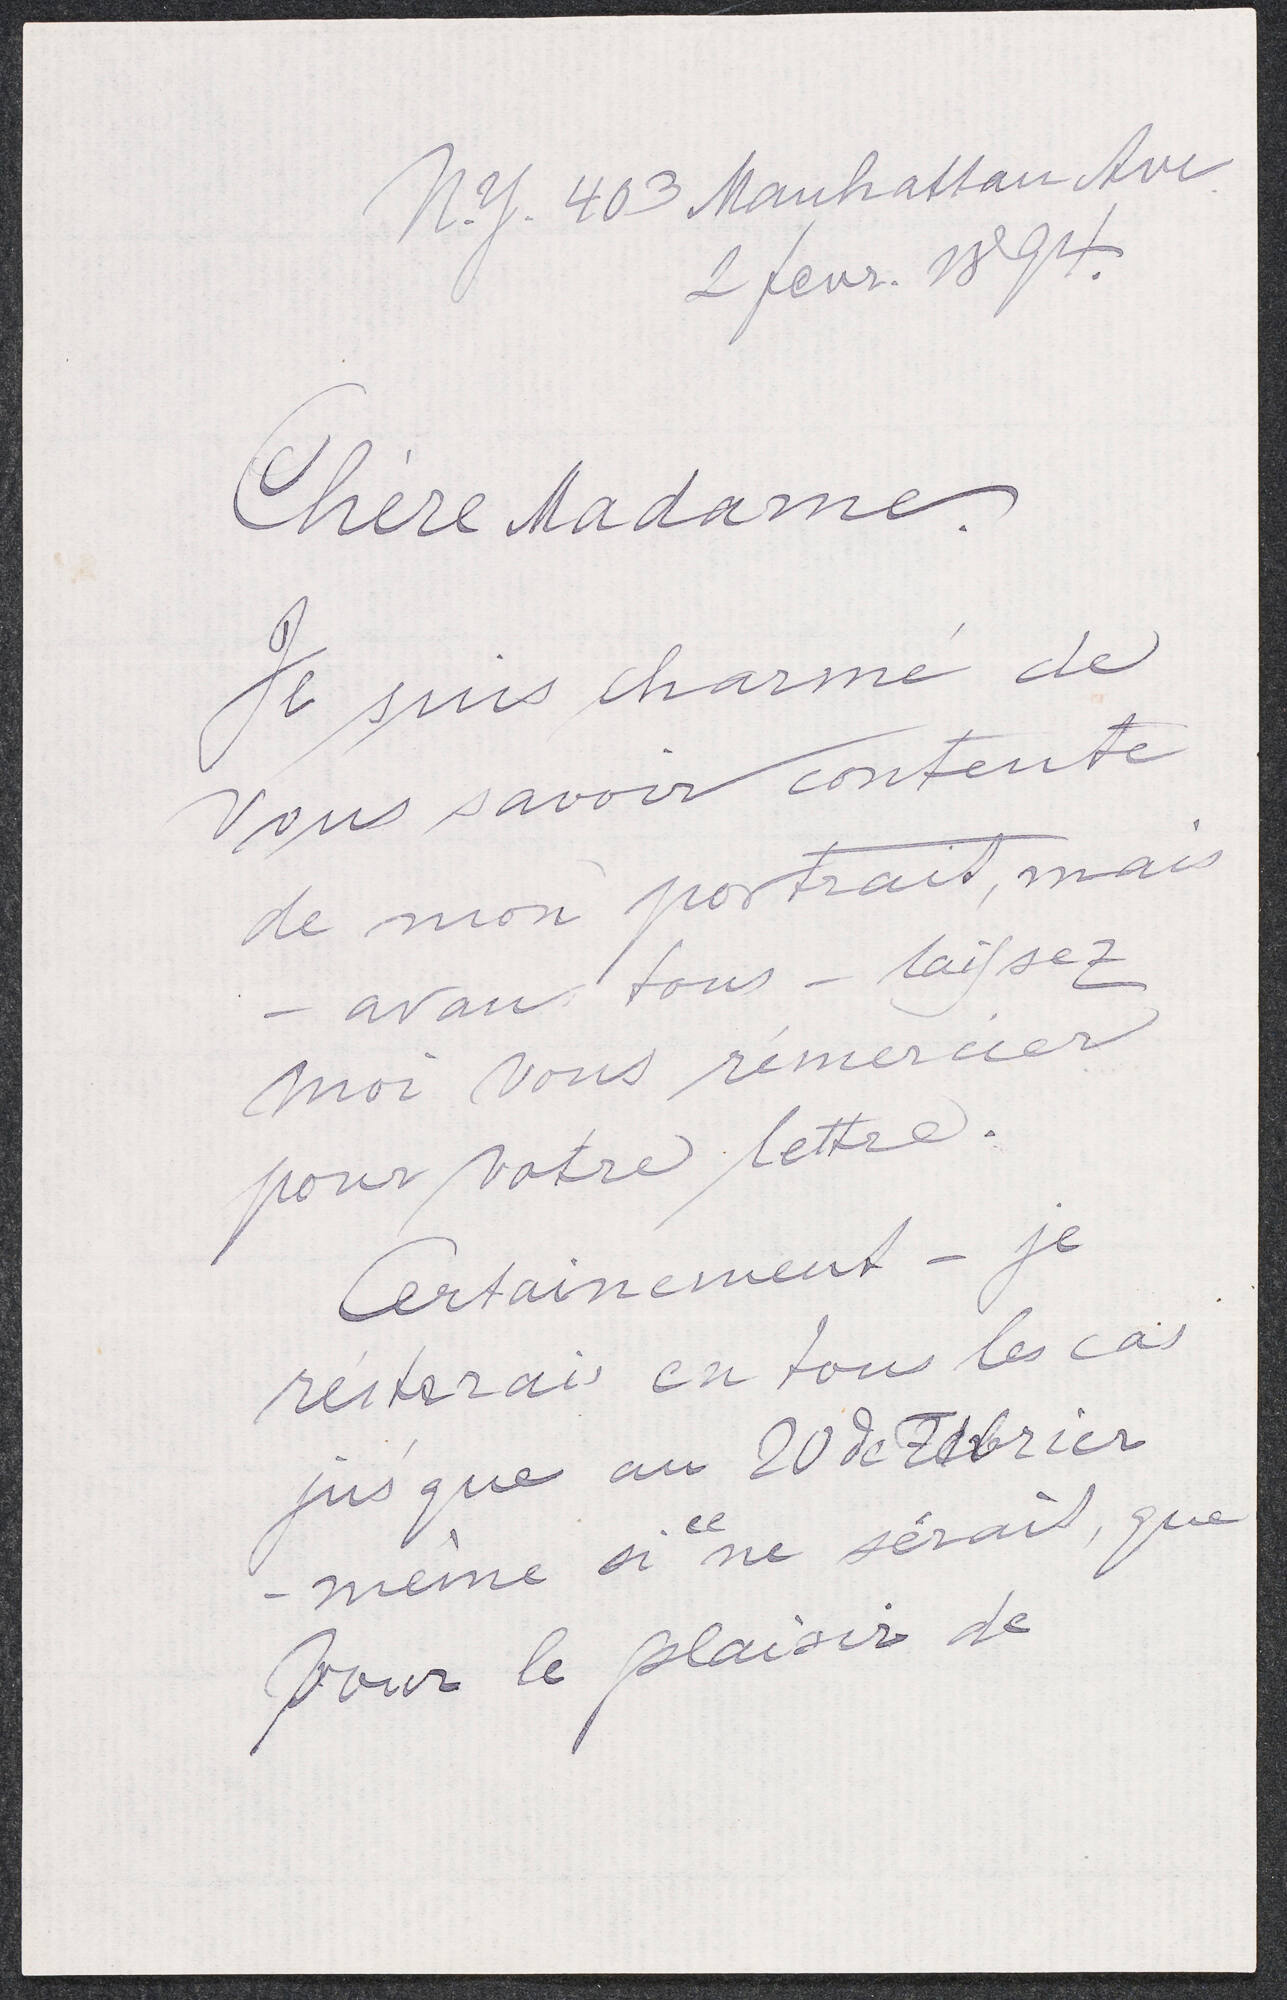 N.Y. 403 Manhattan Ave.
2 fevr. 1894.
Chère Madame.
Je suis charmé de
vous savoir contente
de mon portrait, mais
- avan tous - laissez
moi vous rémercier
pour votre lettre.
Certainement - je
résterais en tous les cas
jusque au 20 de Febrier
- même si ce ne sérait, que
pour le plaisir de